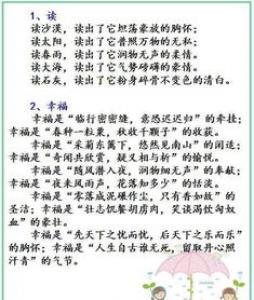 1、读
读沙漠，读出了它坦荡豪放的胸怀；
读太阳，读出了它普照万物的无私；
读春雨，读出了它润物无声的柔情；
读大海，读出了它气势磅礴的豪情。
读石灰，读出了它粉身碎骨不变色的清白。
2、幸福
幸福是“临行密密缝，意恐迟迟归”的牵挂；
幸福是“春种一粒粟，秋收千颗子”的收获。
幸福是“采菊东篱下，悠然见南山”的闲适；
幸福是“奇闻共欣赏，疑义相与析”的愉悦。
幸福是“随风潜入夜，润物细无声”的奉献；
幸福是“夜来风雨声，花落知多少”的恬淡。
幸福是“零落成泥碾作尘，只有香如故”的
圣洁；幸福是“壮志饥餐胡虏肉，笑谈渴饮匈奴
血”的豪壮。
幸福是“先天下之忧而忧，后天下之乐而乐”
的胸怀；幸福是“人生自古谁无死，留取丹心照
汗青”的气节。